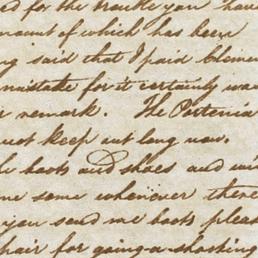 ed for the trouble you have
amount of which has been
ng said that I paid
mistake for it certainly was
r remark. The
ust keep out long now.
he boots and shoes and wi
me some whenever there
you send me boots pleas
pair for going a shooting